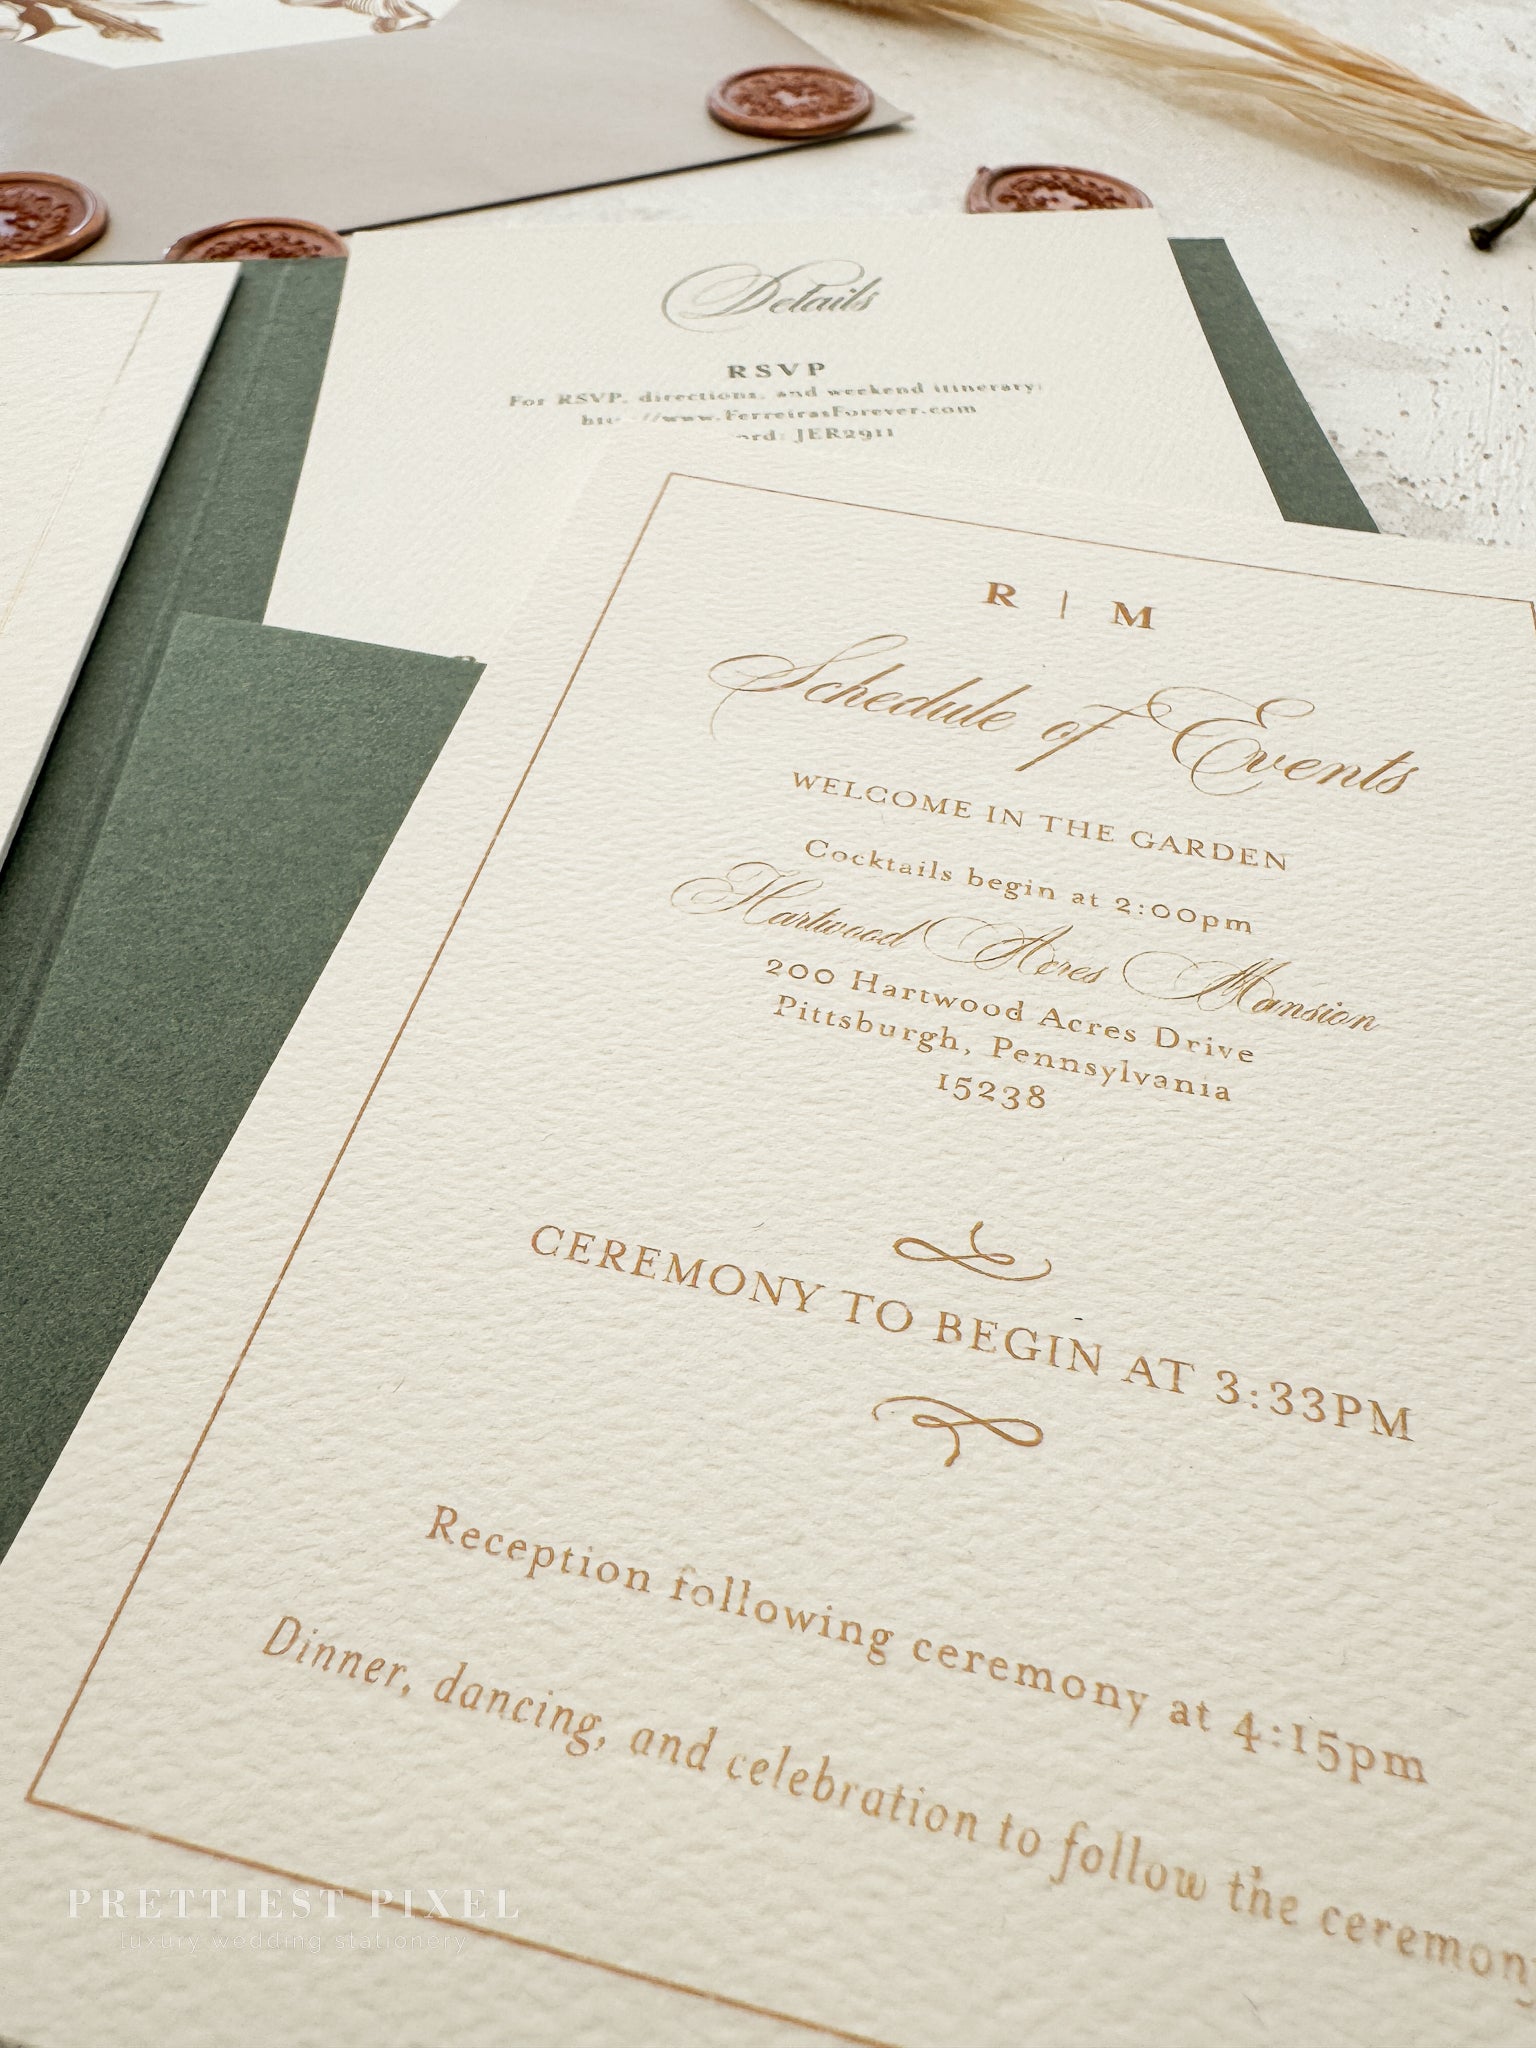 Details
RSVP
For RSVP, directions, and weekend itinerary:
//www.FerreirasForever.com
JER2911
R | M
Schedule of Events
WELCOME IN THE GARDEN
Cocktails begin at 2:00pm
Hartwood Acres Mansion
200 Hartwood Acres Drive
Pittsburgh, Pennsylvania
15238
CEREMONY TO BEGIN AT 3:33PM
Reception following ceremony at 4:15pm
Dinner, dancing, and celebration to follow the ceremony
PRETTIEST PIXEL
luxury wedding stationery